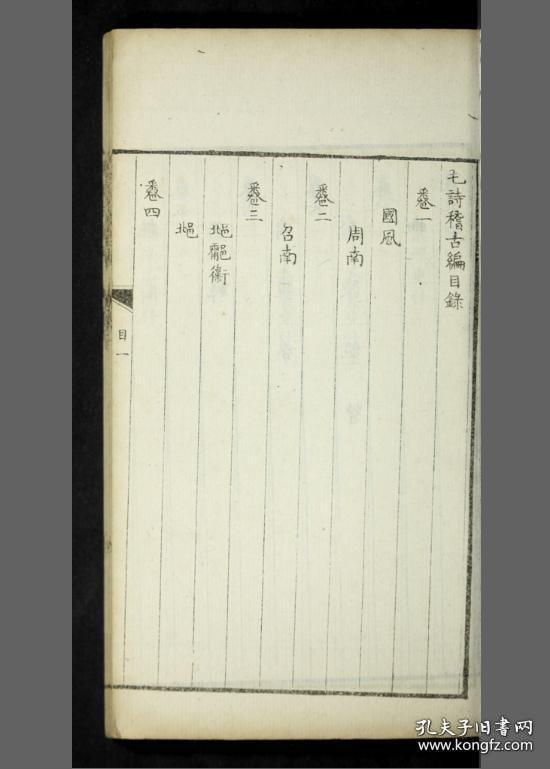 毛詩稽古編目錄
卷一
國風
周南
卷二
召南
卷三
邶鄘衞
邶
卷四
目一
孔夫子旧书网
www.kongfz.com